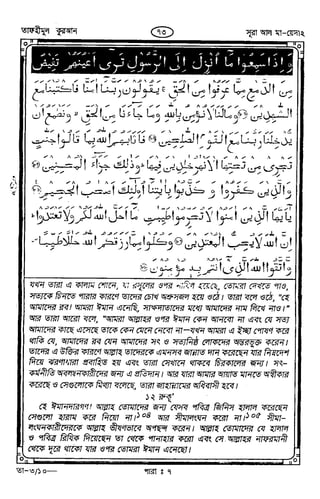 তাফহীমুল কুরআন
৭৩
সূরা আল মা-য়েদাহ
وَإِذَا سَمِعُوا مَا أُنْزِلَ إِلَى الرَّسُولِ تَرَى أَعْيُنَهُمْ تَفِيضُ
مِنَ الدَّمْعِ مِمَّا عَرَفُوا مِنَ الْحَقِّ يَقُولُونَ رَبَّنَا آمَنَّا فَاكْتُبْنَا مَعَ
الشَّاهِدِينَ وَمَا لَنَا لَا نُؤْمِنُ بِاللَّهِ وَمَا جَاءَنَا مِنَ الْحَقِّ وَنَطْمَعُ أَنْ
يُدْخِلَنَا رَبُّنَا مَعَ الْقَوْمِ الصَّالِحِينَ فَأَثَابَهُمُ اللَّهُ بِمَا قَالُوا جَنَّاتٍ
تَجْرِي مِنْ تَحْتِهَا الْأَنْهَارُ خَالِدِينَ فِيهَا وَذَلِكَ جَزَاءُ الْمُحْسِنِينَ
وَالَّذِينَ كَفَرُوا وَكَذَّبُوا بِآيَاتِنَا أُولَئِكَ أَصْحَابُ الْجَحِيمِ
يَا أَيُّهَا الَّذِينَ آمَنُوا لَا تُحَرِّمُوا طَيِّبَاتِ مَا أَحَلَّ اللَّهُ لَكُمْ وَلَا تَعْتَدُوا
إِنَّ اللَّهَ لَا يُحِبُّ الْمُعْتَدِينَ وَكُلُوا مِمَّا رَزَقَكُمُ اللَّهُ حَلَالًا طَيِّبًا
وَاتَّقُوا اللَّهَ الَّذِي أَنْتُمْ بِهِ مُؤْمِنُونَ
যখন তারা এ কালাম শোনে, যা রসূলের ওপর নাযিল হয়েছে, তোমরা দেখতে পাও,
সত্যকে চিনতে পারার কারণে তাদের চোখ অশ্রুসজল হয়ে ওঠে। তারা বলে ওঠে, "হে
আমাদের রব! আমরা ঈমান এনেছি, সাক্ষ্যদাতাদের মধ্যে আমাদের নাম লিখে নাও।"
আর তারা আরো বলে, "আমরা আল্লাহর ওপর ঈমান কেন আনবো না এবং যে সত্য
আমাদের কাছে এসেছে তাকে কেন মেনে নেবো না—যখন আমরা এ ইচ্ছা পোষণ করে
থাকি যে, আমাদের রব যেন আমাদের সৎ ও সত্যনিষ্ঠ লোকদের অন্তরভুক্ত করেন।"
তাদের এ উক্তির কারণে আল্লাহ তাদেরকে এমনসব জান্নাত দান করেছেন যার নিম্নদেশ
দিয়ে ঝরণাধারা প্রবাহিত হয় এবং তারা সেখানে থাকবে চিরকালের জন্য। সৎ-
কর্মনীতি অবলম্বনকারীদের জন্য এ প্রতিদান। আর যারা আমার আয়াত মানতে অস্বীকার
করেছে ও সেগুলোকে মিথ্যা বলেছে, তারা জাহান্নামের অধিবাসী হবে।
১২ রুকূ'
হে ঈমানদারগণ! আল্লাহ তোমাদের জন্য যেসব পবিত্র জিনিস হালাল করেছেন
সেগুলো হারাম করে নিয়ো না।১০৪ আর সীমালংঘন করো না।১০৫ সীমা-
লংঘনকারীদেরকে আল্লাহ ভীষণভাবে অপছন্দ করেন। আল্লাহ তোমাদের যে হালাল
ও পবিত্র রিযিক দিয়েছেন তা থেকে পানাহার করো এবং সে আল্লাহর নাফরমানী
থেকে দূরে থাকো যার ওপর তোমরা ঈমান এনেছো।
তা-৩/১০—
পারা : ৭